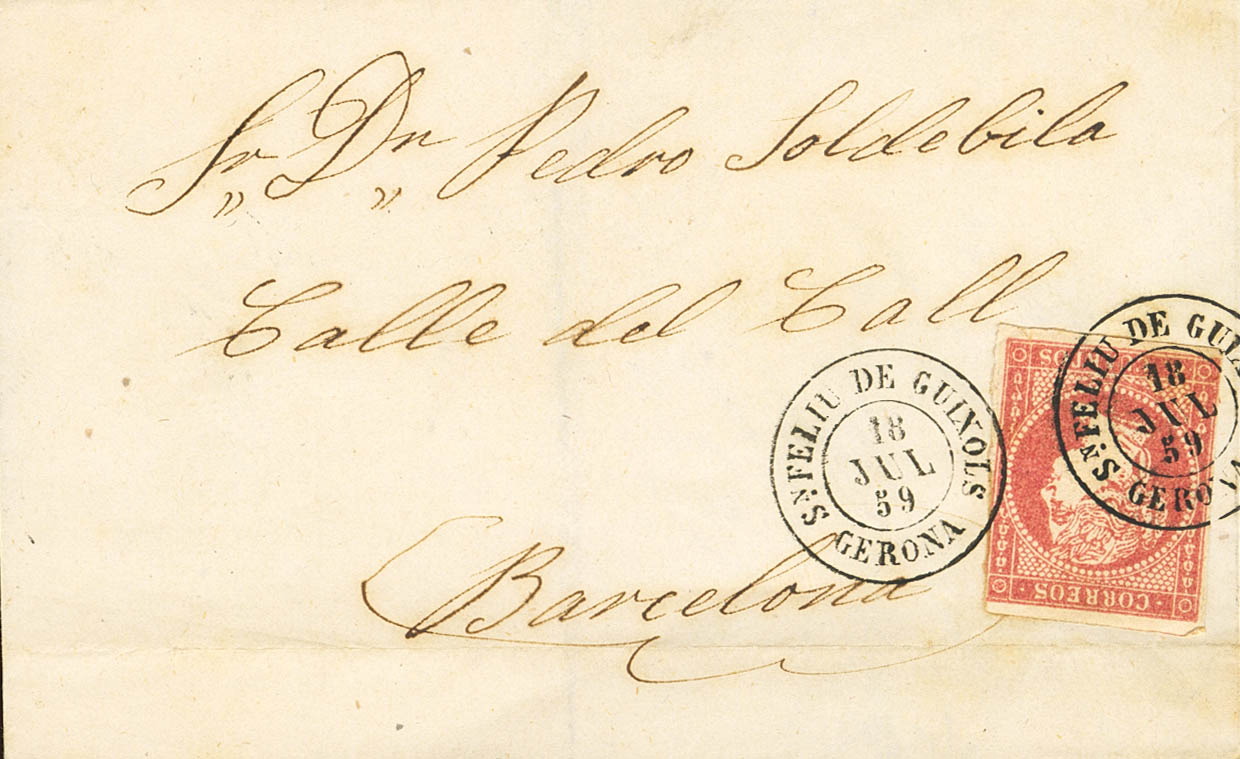 Sr,, Dn,, Pedro Soldebila
Calle del Call
Barcelona
Sn FELIU DE GUIXOLS
18
JUL
59
GERONA
Sn FELIU DE GUIX
18
JUL
59
GERONA
CORREOS